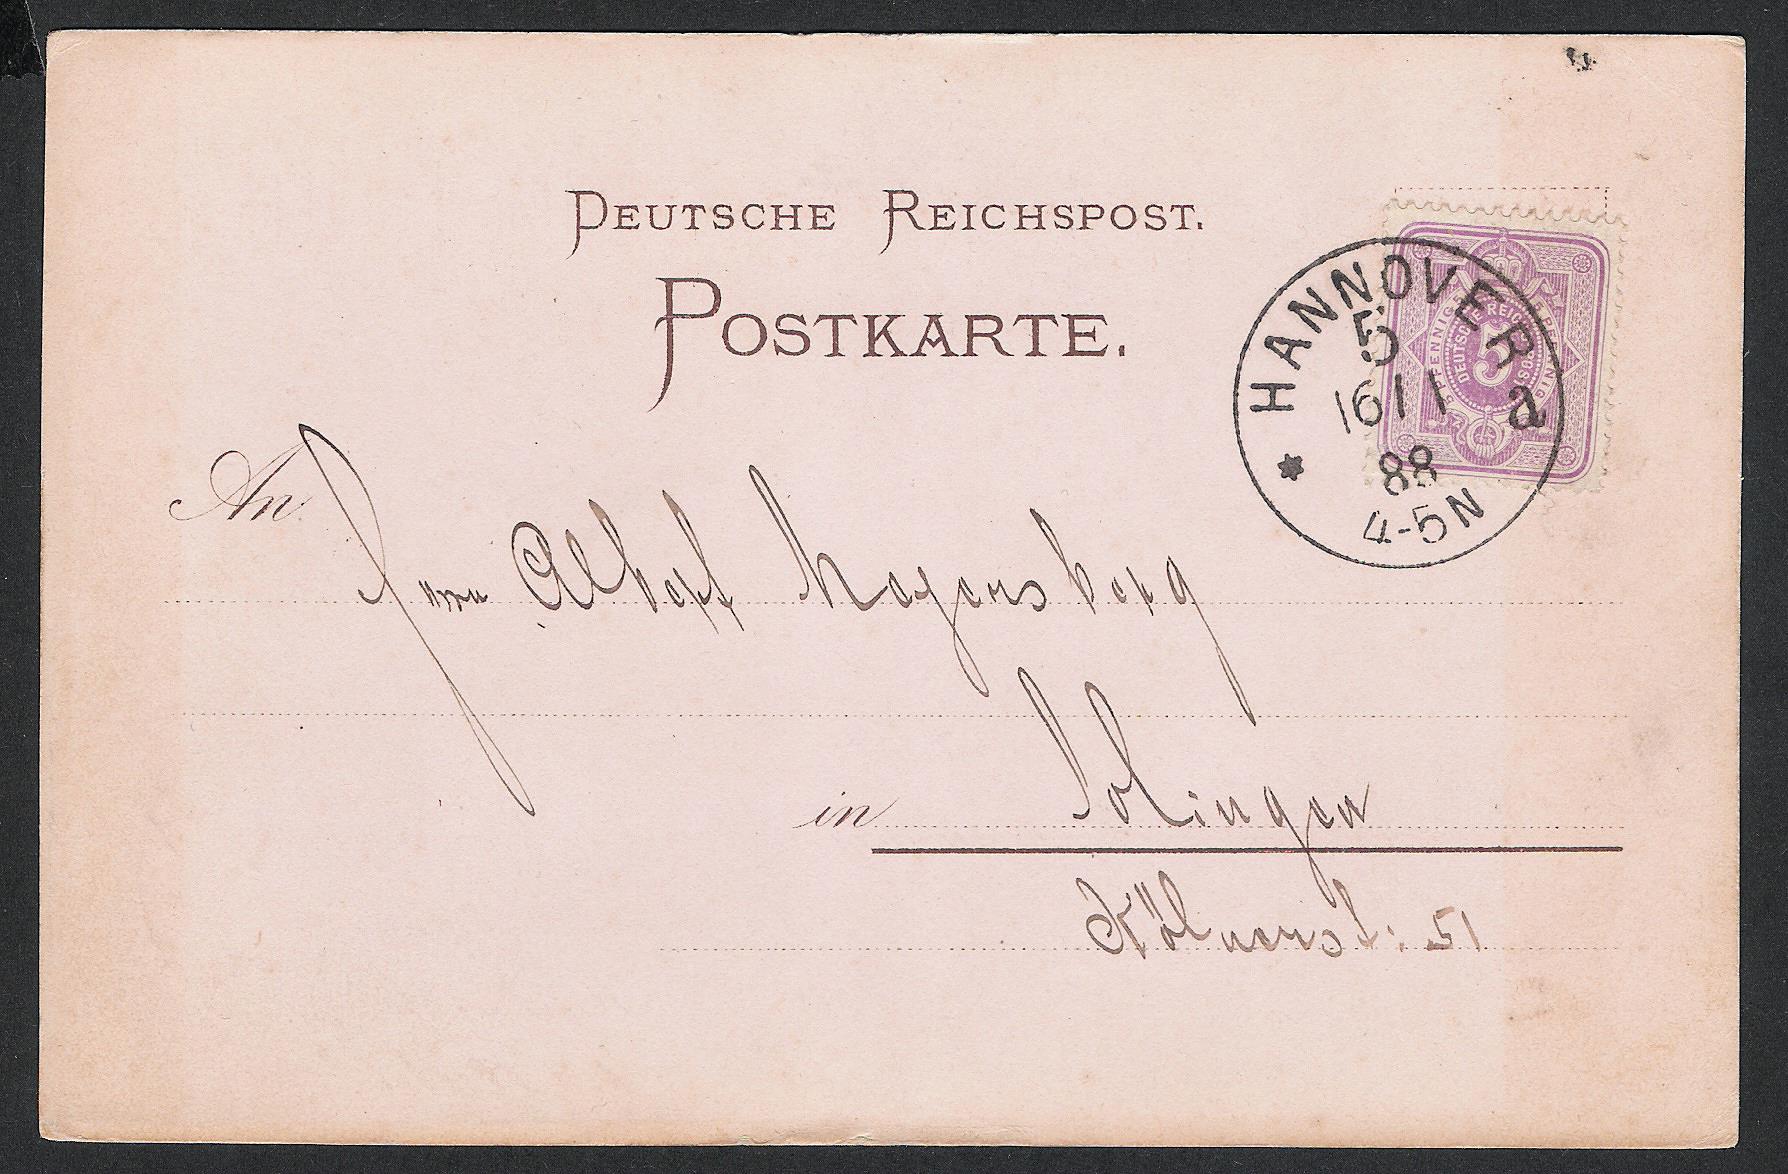 DEUTSCHE REICHSPOST.
POSTKARTE.
HANNOVER
5 a
16 11
88
4-5N
5 PFENNIG
DEUTSCHE REICHSPOST
5
An
Herrn Albert Meyersberg
in Solingen
Kölnerst. 51